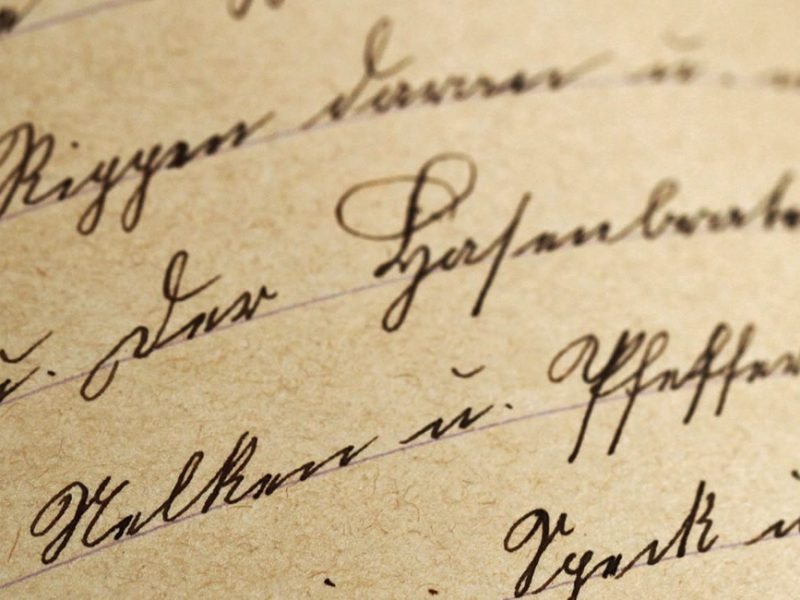 Rippen daran u.
u. der Hasenbrate
Nelken u. Pfeffer
Speck u